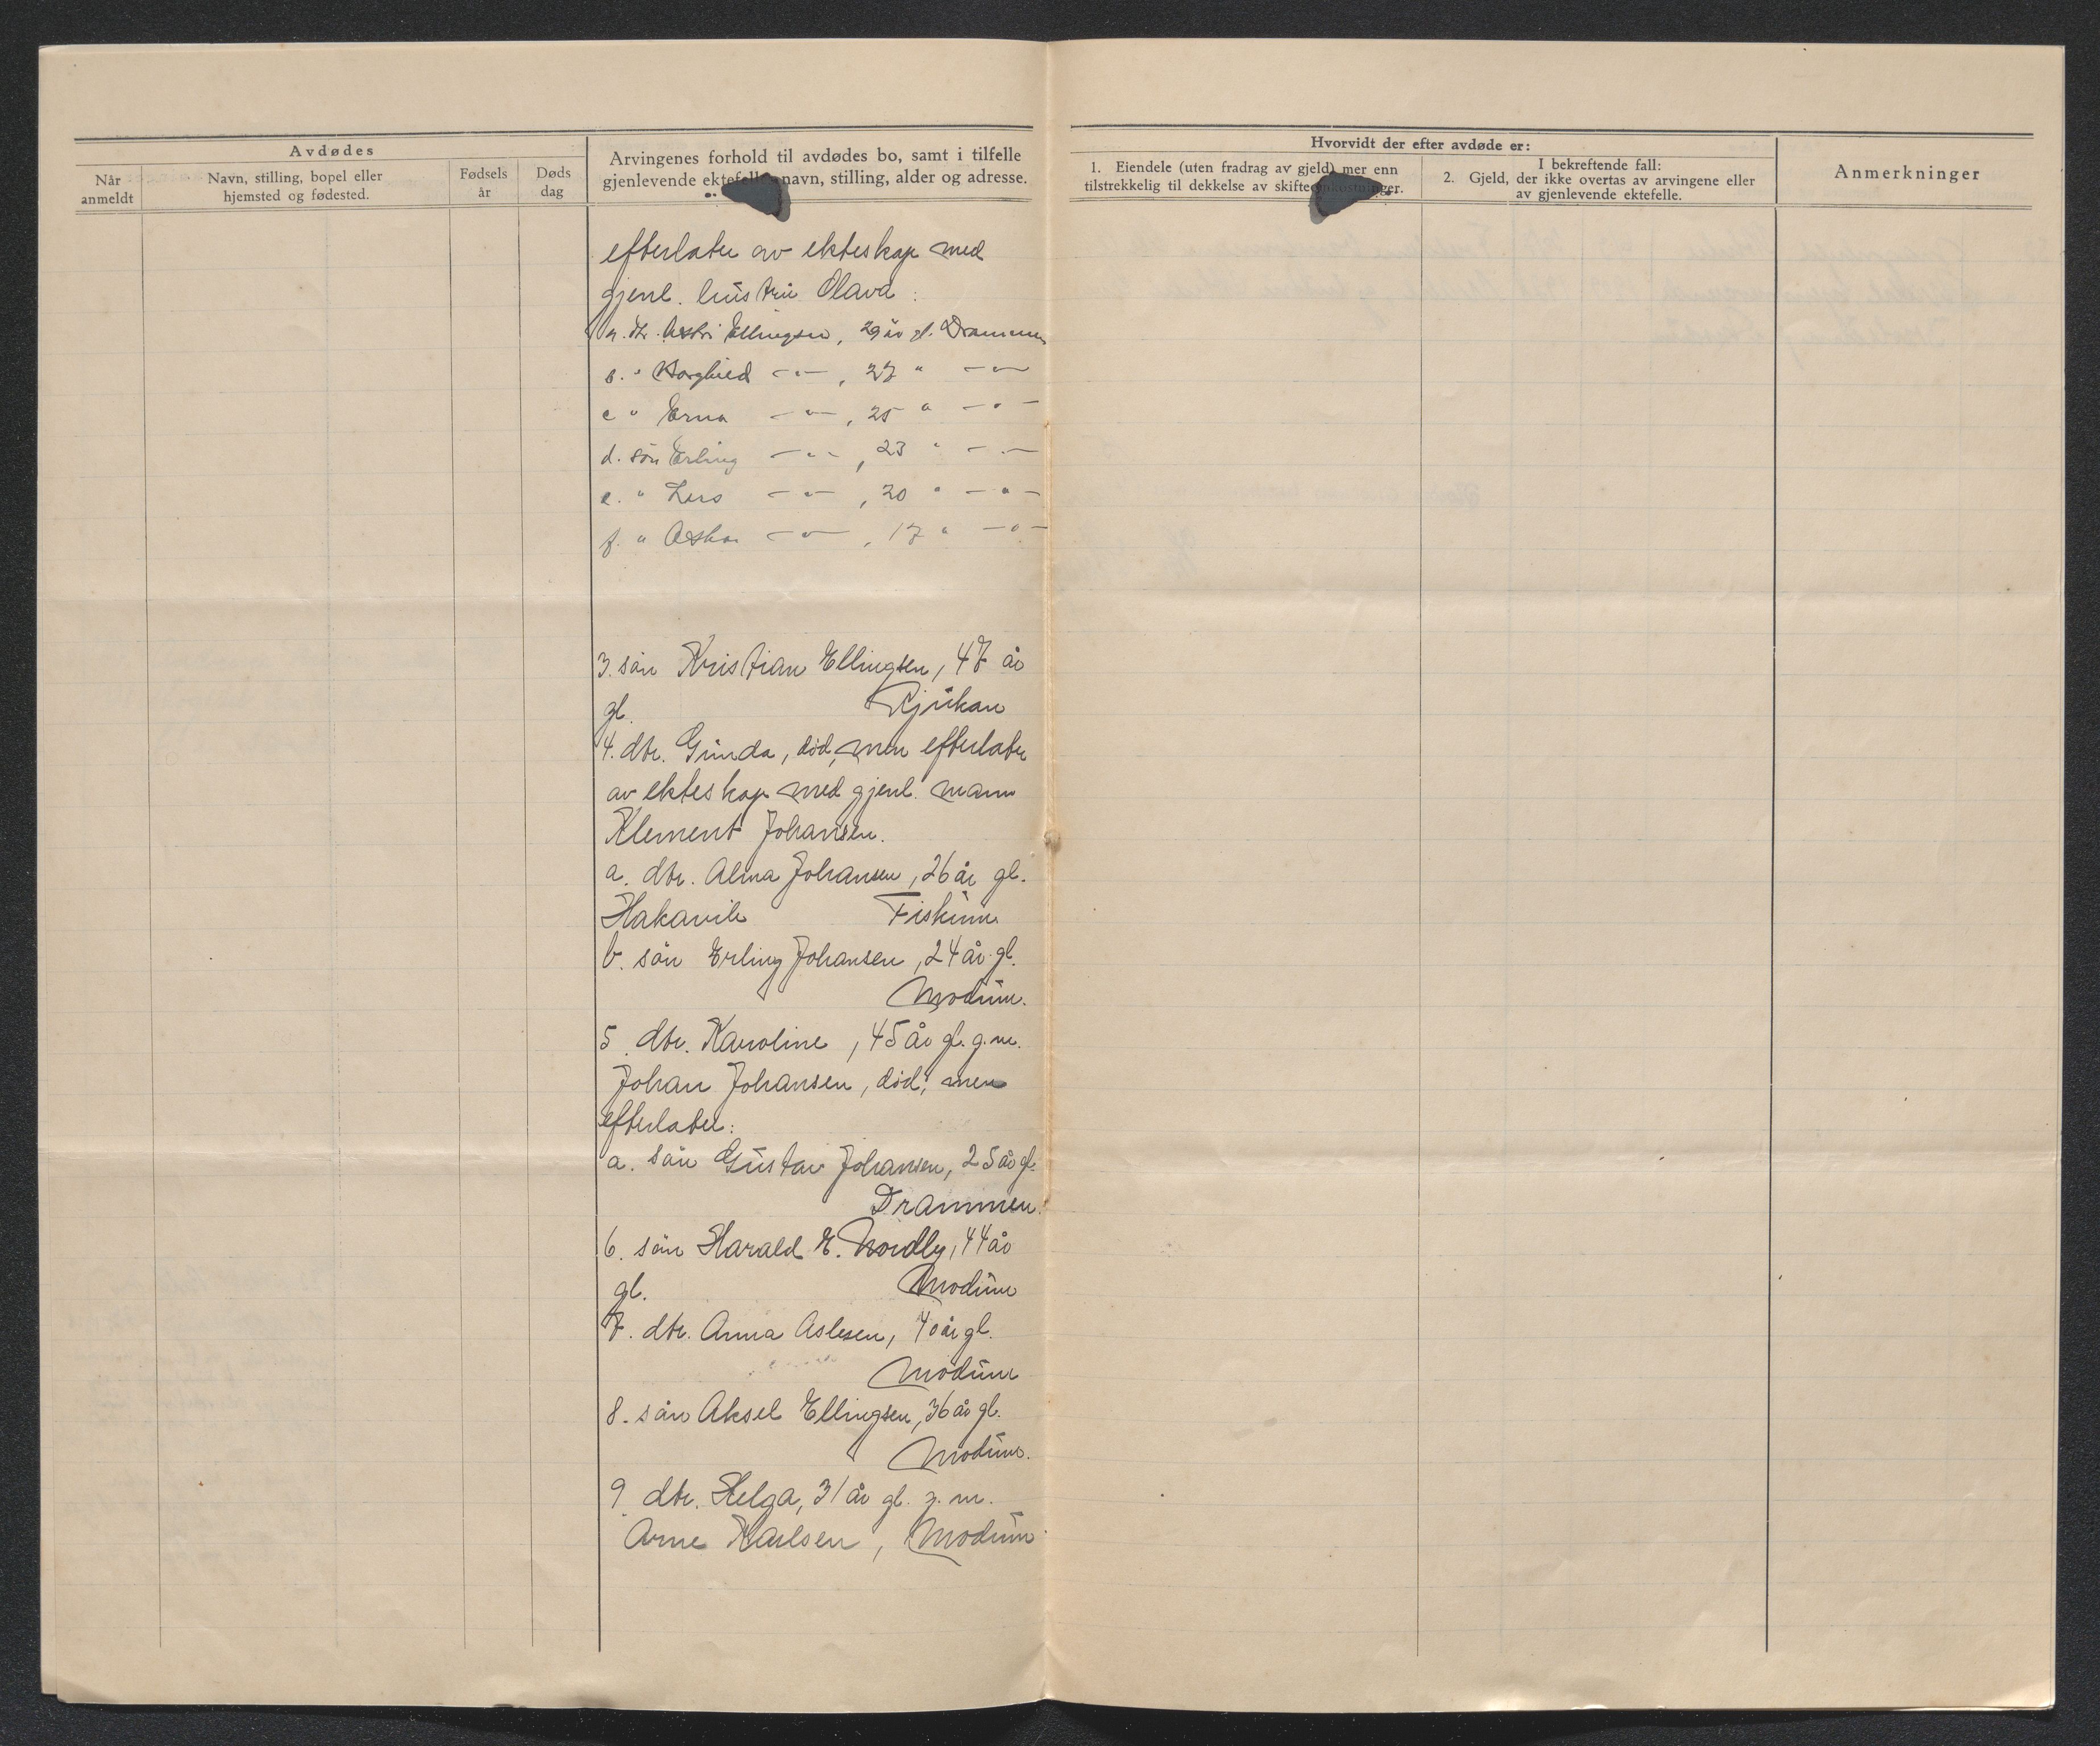 Avdødes
Når anmeldt
Navn, stilling, bopel eller hjemsted og fødested.
Fødsels år
Døds dag
Arvingenes forhold til avdødes bo, samt i tilfelle
gjenlevende ektefelles navn, stilling, alder og adresse.
Hvorvidt der efter avdøde er:
1. Eiendele (uten fradrag av gjeld) mer enn
tilstrekkelig til dekkelse av skifteomkostninger.
I bekreftende fall:
2. Gjeld, der ikke overtas av arvingene eller
av gjenlevende ektefelle.
Anmerkninger
efterlater av ekteskap med
gjenl. hustru Olava:
a. dtr. Astri Ellingsen, 29 år gl. Drammen
b. " Borghild -"-, 27 " -"-
c " Erna -"-, 25 " -"-
d. sön Erling -"-, 23 " -"-
e. " Lars -"-, 20 " -"-
f. " -"-, 17 " -"-
3. sön Kristian Ellingsen, 47 år
gl. Rjukan
4. dtr. Gunda, död, men efterlater
av ekteskap med gjenl. mann
Klement Johansen.
a. dtr. Alma Johansen, 26 år gl.
Hakavik Fiskum
b. sön Erling Johansen, 24 år gl.
Modum.
5. dtr. Karoline, 45 år gl. g.m.
Johan Johansen, död, men
efterlater:
a. sön Gustav Johansen, 25 år gl.
Drammen.
6. sön Harald E. Nordby, 44 år
gl. Modum
7. dtr. Anna Aslesen, 40 år gl.
Modum
8. sön Aksel Ellingsen, 36 år gl.
Modum.
9 dtr. Helga, 31 år gl. g. m.
Arne Karlsen, Modum